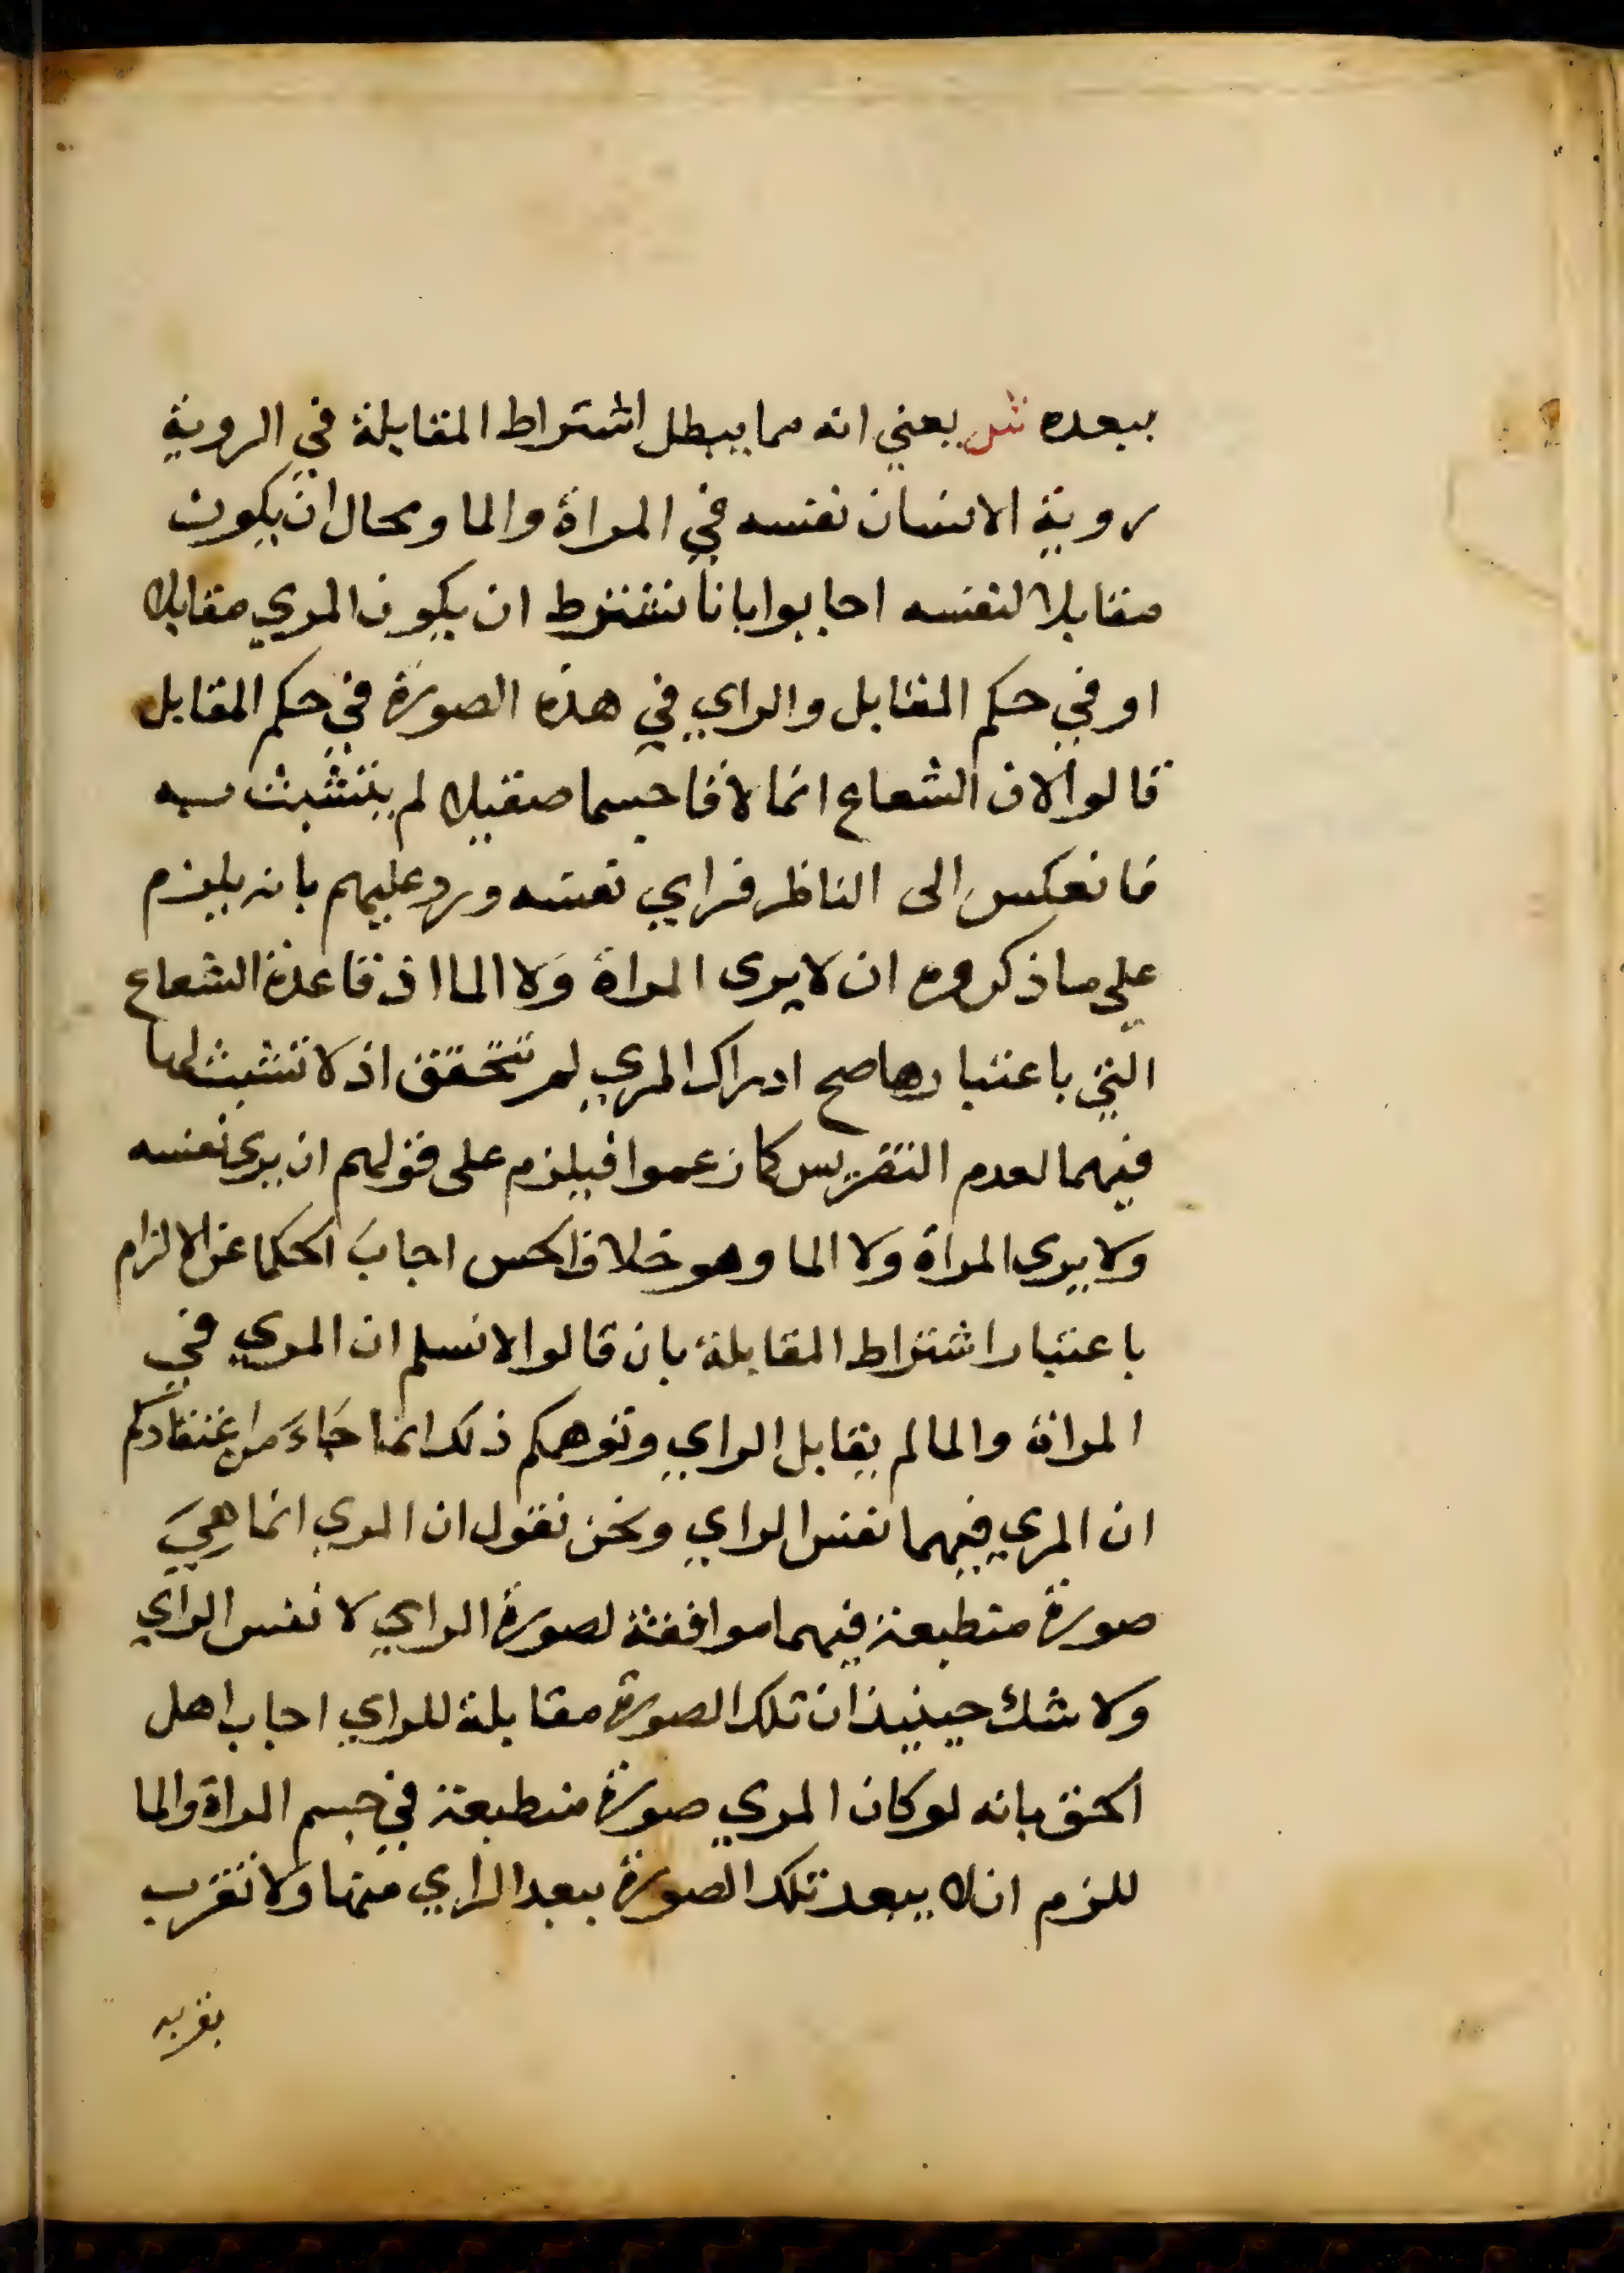 ببعده ش يعني انه مما يبطل اشتراط المقابلة في الروية
روية الانسان نفسه في المراة والما ومحال ان يكون
مقابلا لنفسه اجابوا بانا نشترط ان يكون المري مقابلا
او في حكم المقابل والراي في هذه الصورة في حكم المقابل
قالوا لان الشعاع انما لاقا جسما صقيلا لم يتشبث به
فانعكس الى الناظر فراي نفسه ورد عليهم بانه يلزم
علي ما ذكروه ان لا يرى المراة ولا الما اذ قاعدة الشعاع
التي باعتبارها صح ادراك المري لم تتحقق اذ لا تشبث لها
فيهما لعدم التضريس كما زعموا فيلزم على قولهم ان يرى نفسه
ولا يرى المراة ولا الما وهو خلاف الحس اجاب الحكما عن الالزام
باعتبار اشتراط المقابلة بان قالوا لا نسلم ان المري في
المراة والما لم يقابل الراي وتوهمكم ذلك انما جاء من اعتقادكم
ان المري فيهما نفس الراي ونحن نقول ان المري انما هي
صورة منطبعة فيهما موافقة لصورة الراي لا نفس الراي
ولا شك حينيذ ان تلك الصورة مقابلة للراي اجاب اهل
الحق بانه لو كان المري صورة منطبعة في جسم المراة والما
للزم ان لا يبعد تلك الصورة ببعد الراي منها ولا تقرب
بقربه